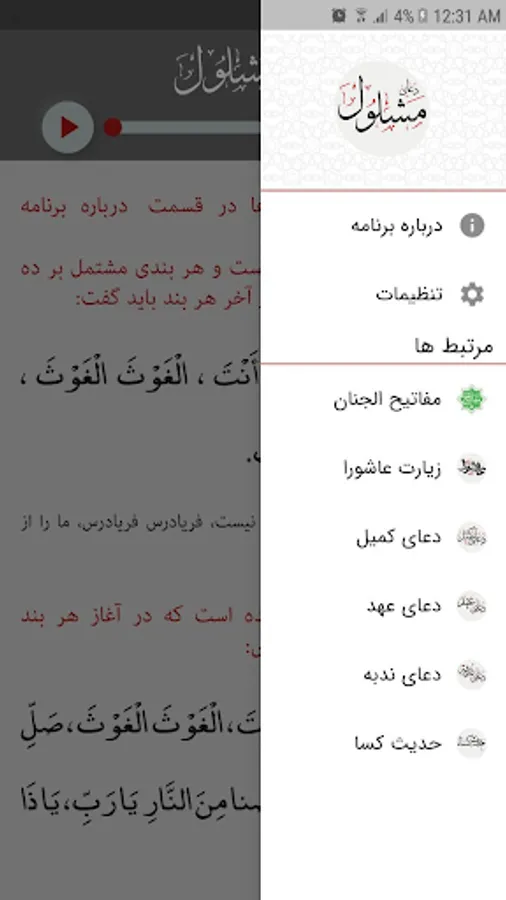 4% 12:31 AM
دعای
مشلول
درباره برنامه
تنظیمات
مرتبط ها
مفاتیح الجنان
زیارت عاشورا
دعای کمیل
دعای عهد
دعای ندبه
حدیث کسا
مشلول
ها در قسمت درباره برنامه
ست و هر بندی مشتمل بر ده
آخر هر بند باید گفت:
أَنْتَ ، الْغَوْثَ الْغَوْثَ ،
نیست، فریادرس فریادرس، ما را از
ده است که در آغاز هر بند
تَ، الْغَوْثَ الْغَوْثَ، صَلِّ
صنا مِنَ النَّارِ یَا رَبِّ، یَا ذَا